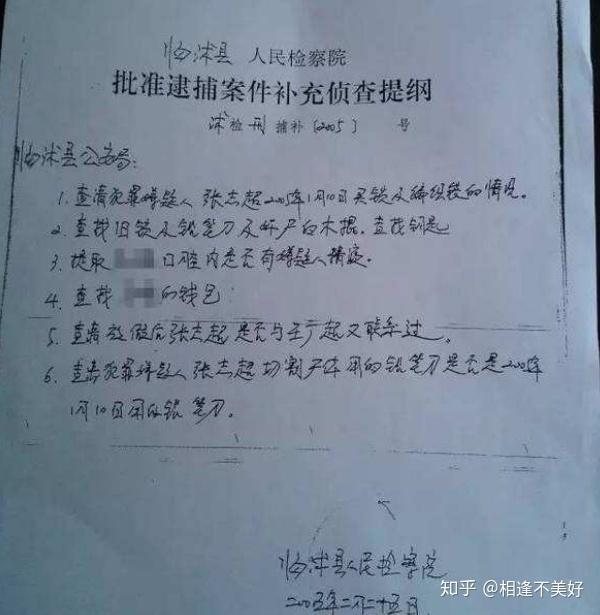 临沭县 人民检察院
批准逮捕案件补充侦查提纲
沭检 刑 捕补〔2005〕 号
临沭县公安局:
1. 查清犯罪嫌疑人 张志超2005年1月10日买锁及编组锁的情况。
2. 查找旧锁及铅笔刀及奸尸的木棍。查找钥匙
3. 提取 口腔内是否有嫌疑人精液。
4. 查找 的钱包
5. 查清放假后张志超是否与王广超又联系过。
6. 查清犯罪嫌疑人 张志超切割尸体用的铅笔刀是否是2005年
1月10日用的铅笔刀。
临沭县人民检察院
二00五年二月二十五日
知乎 @相逢不美好